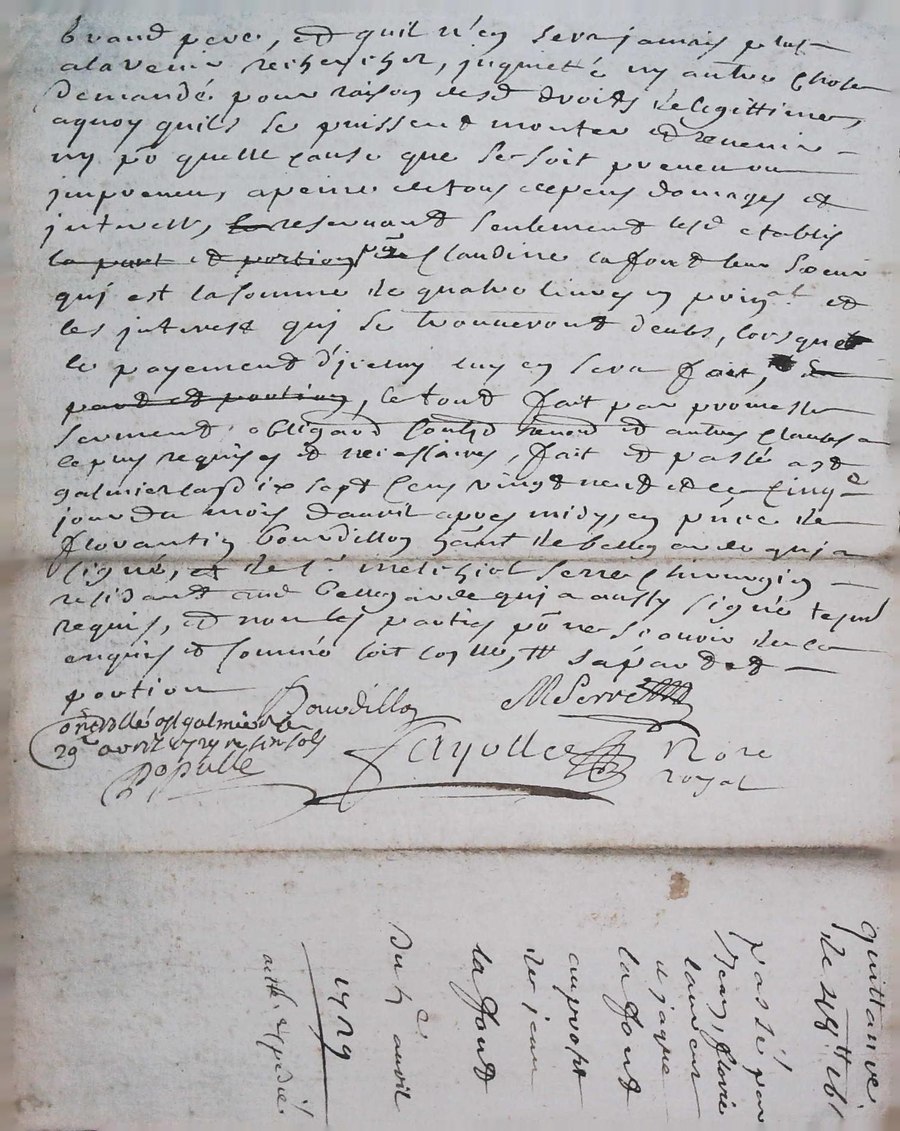 Grand pere, et quil n'en sera jamais plus
alavenir rechercher, jnquietté ny autre Chose
demandé pour raison desd droits de legittimes,
aquoy quils se puissent monter et revenir
ny po quelle cause que se soit preveu ou
jmpreveu, apeine de tous depens domages et
jnterets, reservant seulement lesd etablis
la part et portion de Claudine lafont leur soeur
qui est lasomme de quatre livres en prinal et
les jnterest qui se trouveront deubs, lorsque
le payement d'jcelluy luy en sera fait,
part et portion, le tout fait par promesse
serment, obligaon et autres Clauses a
ce plus requises et necessaires, fait et passé a st
galmier lan dix sept Cens vingt neuf et le Cinqe
jour du mois davril apres midy, en pnce de
florantin bourdillon de bellegarde qui a
signé, et de sr melchiol serre Chirurgien
residant aud bellegarde qui a aussy signé tesmd
requis, et non les parties po ne scavoir de ce
enquis et sommé soit
portion
Bourdillon MSerre
Controllé a st galmier le
29e avril 1729 r sols
Populle
Fayolle Nore
royal
quittance
de
passé par
Jean, fleurie
laurens
et jaque
lafont
auproft
de jean
lafont
du 5e avril
1729
acte expedié